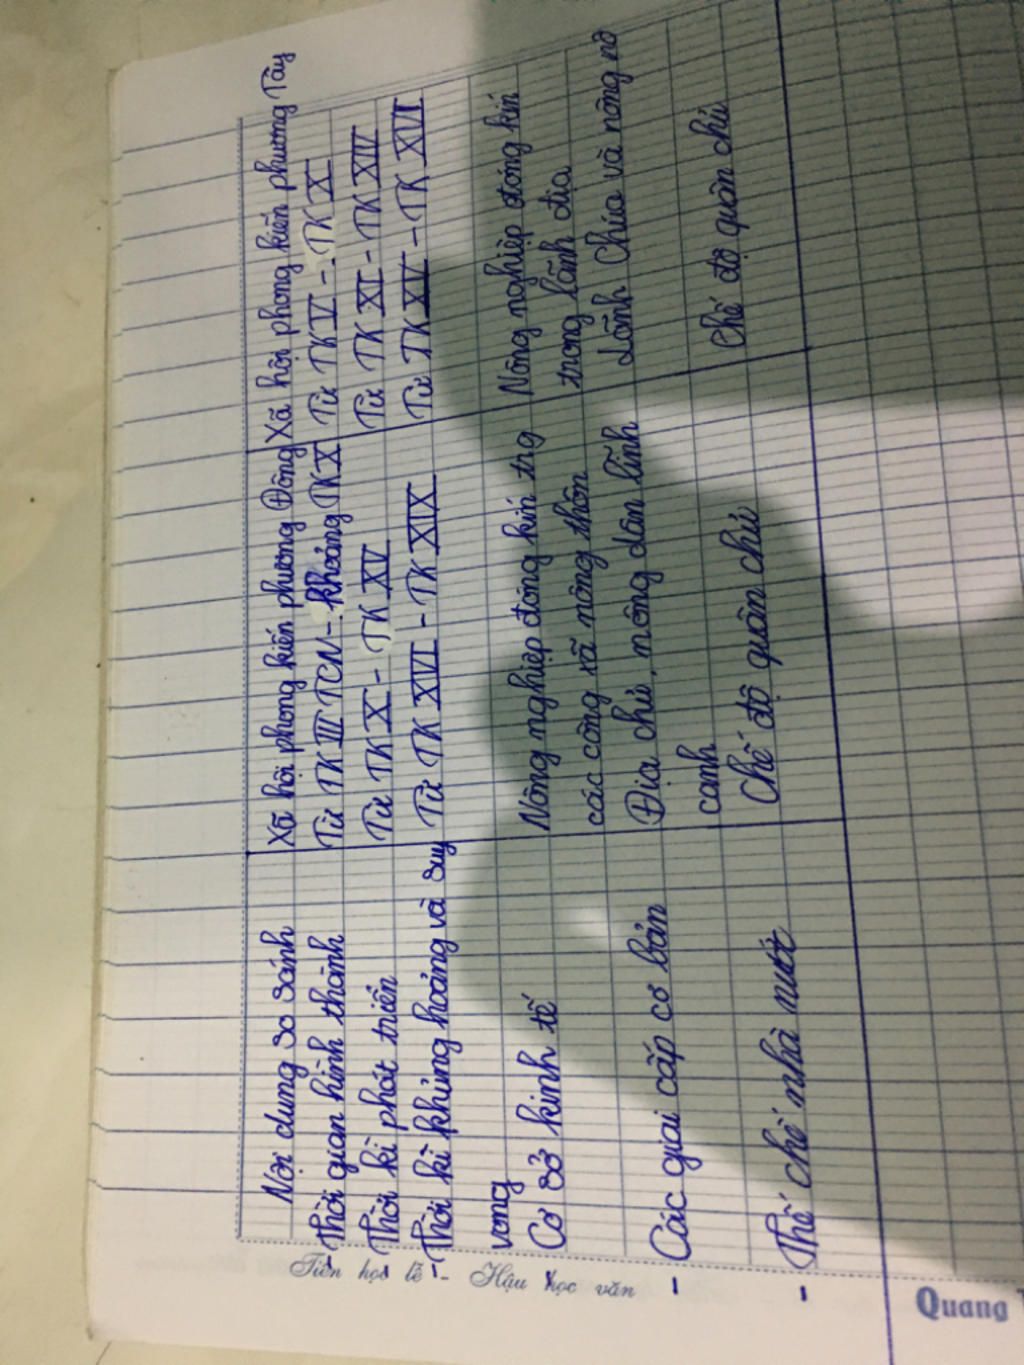 Nội dung so sánh Xã hội phong kiến phương Đông Xã hội phong kiến phương Tây
- Thời gian hình thành Từ TK III TCN - khoảng TK X Từ TK V - TK X
- Thời kì phát triển Từ TK X - TK XV Từ TK XI - TK XIV
- Thời kì khủng hoảng và suy Từ TK XVI - TK XIX Từ TK XV - TK XVI
vong
Cơ sở kinh tế Nông nghiệp đóng kín trg Nông nghiệp đóng kín
các công xã nông thôn trong lãnh địa
- Các giai cấp cơ bản Địa chủ, nông dân lĩnh Lãnh Chúa và nông nô
canh
- Thể chế nhà nước Chế độ quân chủ Chế độ quân chủ
Tiên học lễ - Hậu học văn
Quang